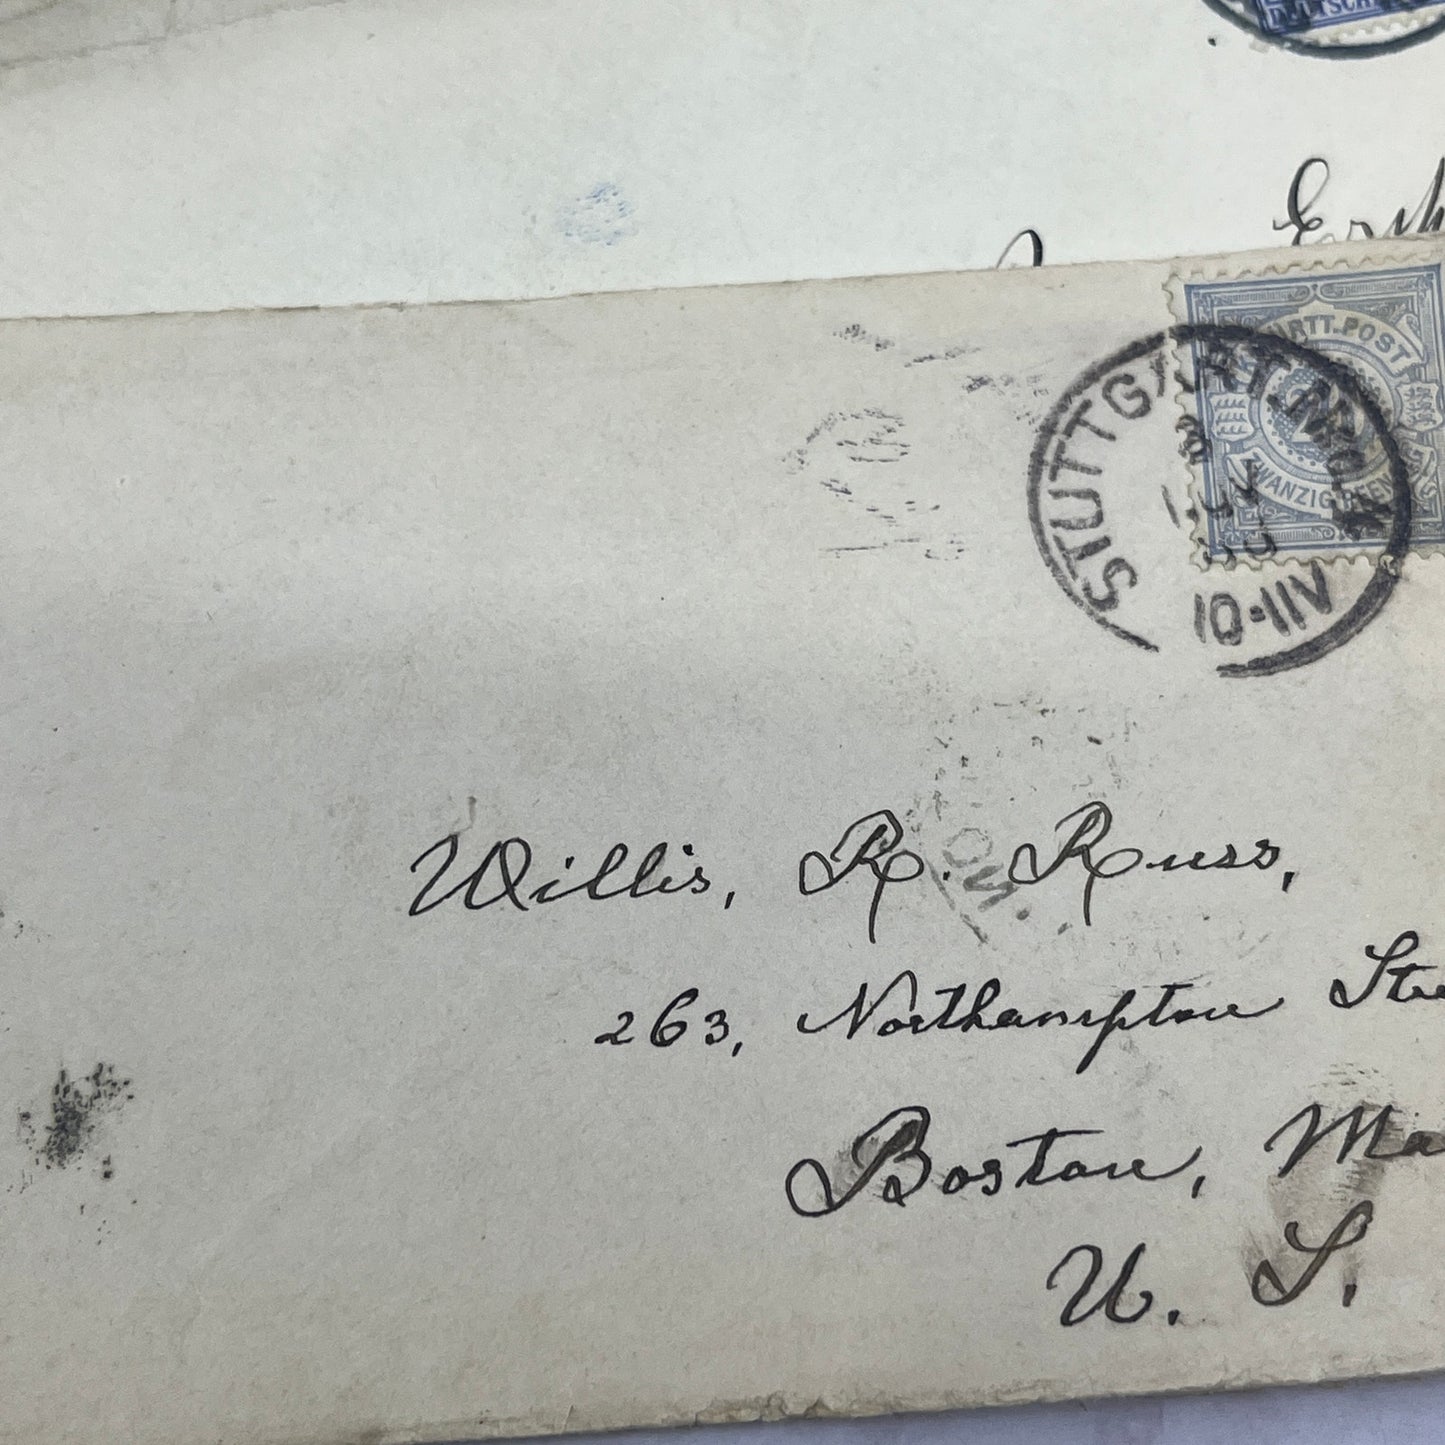 DEUTSCH
WÜRTT. POST
20
ZWANZIG PFENNIG
STUTTGART. No 4
10-11V
Willis, R. Russ,
263, Northampton Stre
Boston, Ma
U. S.